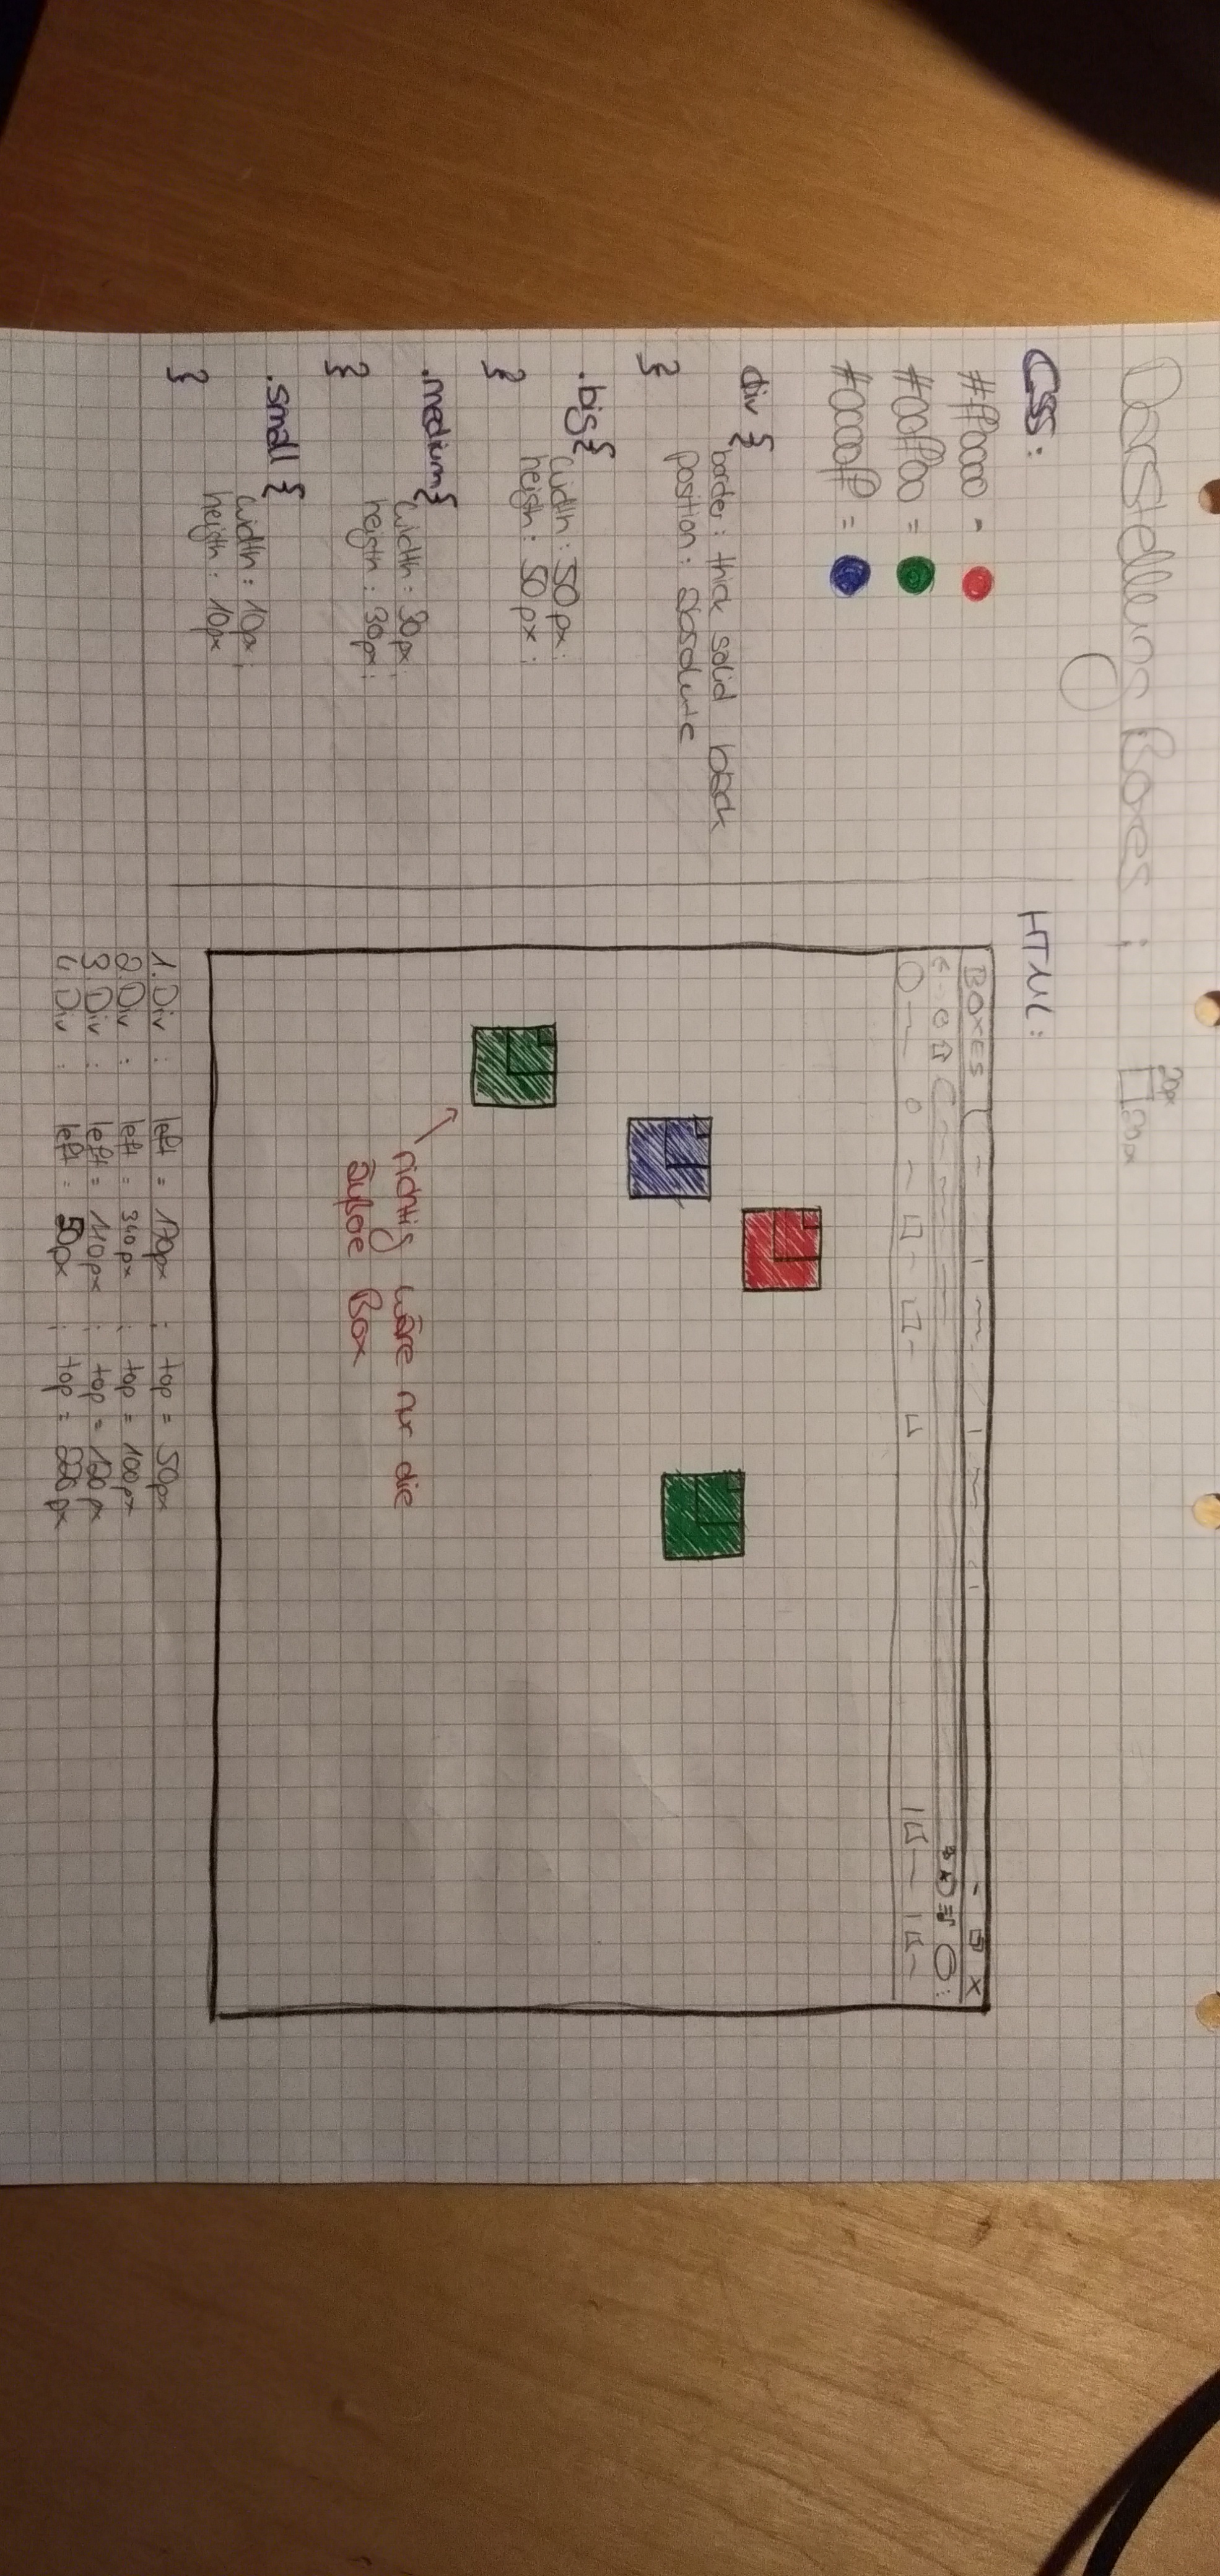 Darstellung Boxes :
20px
20px
CSS:
#ff0000 =
#00ff00 =
#0000ff =
div {
border: thick solid black
position: absolute
}
.big{
width: 50px;
heigth: 50px;
}
.medium{
width: 30px;
heigth: 30px;
}
.small {
width: 10px;
heigth: 10px
}
HTML:
BOXES
richtig wäre nur die
äußere Box
1. Div : left = 170px ; top = 50px
2. Div : left = 340px ; top = 100px
3. Div : left = 110px ; top = 120px
4. Div : left = 50px ; top = 220px